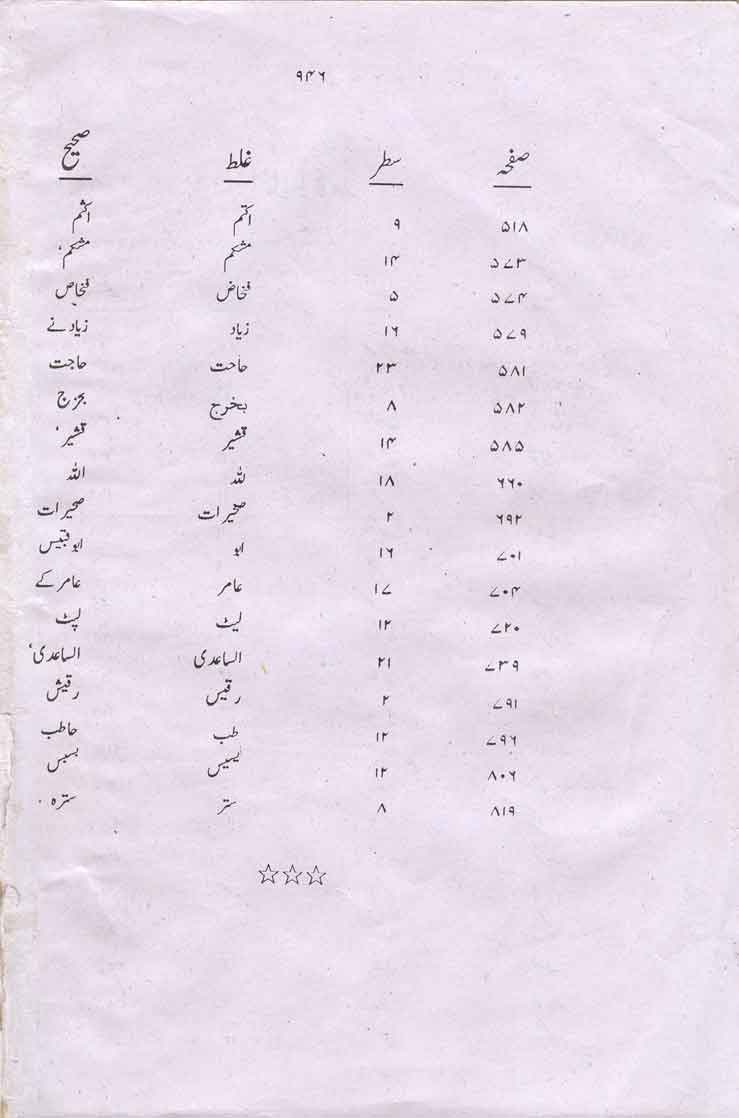 ۹۴۶
صفحہ سطر غلط صحیح
۵۱۸ ۹ اکتم اکثم
۵۷۳ ۱۴ مشکم مشکم،
۵۷۴ ۵ فخاض فخاص
۵۷۹ ۱۶ زیاد زیاد نے
۵۸۱ ۲۳ حاحت حاجت
۵۸۲ ۸ بخرج بخزج
۵۸۵ ۱۴ قشیر قشیر،
۶۶۰ ۱۸ للہ اللہ
۶۹۲ ۲ صخیرات صحیرات
۷۰۱ ۱۶ ابو ابو قبیس
۷۰۴ ۱۷ عامر عامر کے
۷۲۰ ۱۲ لیٹ لپٹ
۷۳۹ ۲۱ الساعدی الساعدی،
۷۹۱ ۲ رقیس رقیش
۷۹۶ ۱۲ طب حاطب
۸۰۶ ۱۲ بسبس
۸۱۹ ۸ ستر سترہ
☆☆☆